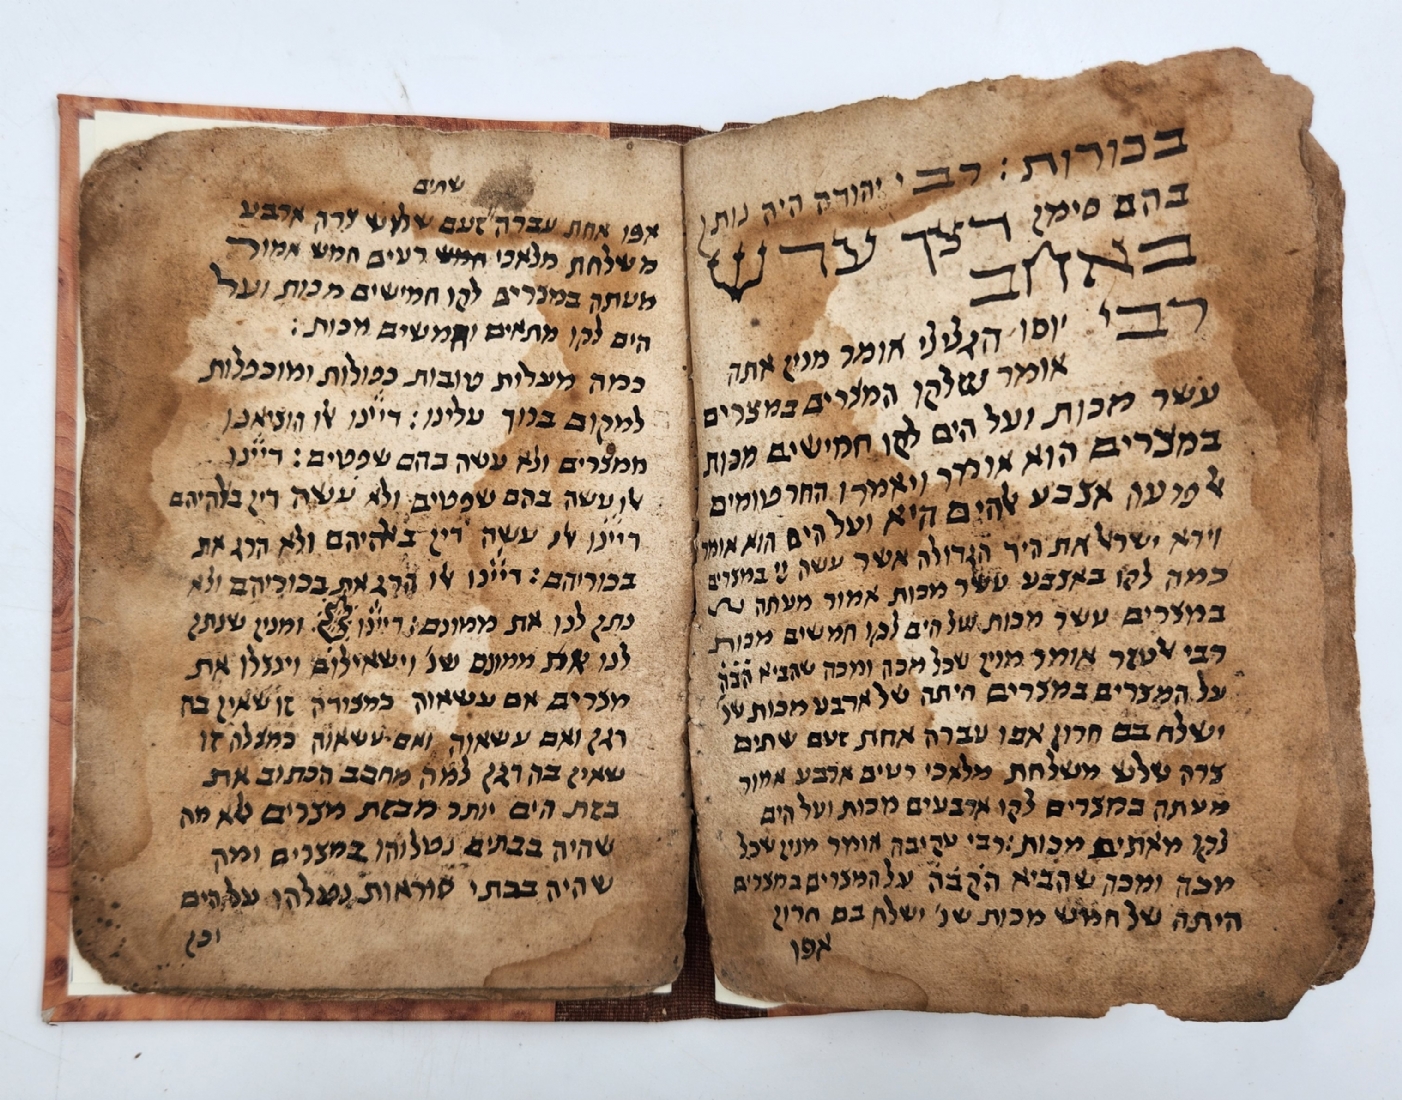 בכורות: רבי יהודה היה נותן
בהם סימן דצך עדש
באחב
רבי יוסו הגלילי אומר מנין אתה
אומר שלקו המצרים במצרים
עשר מכות ועל הים לקו חמישים מכות
במצרים הוא אומר ויאמרו החרטומים
לפרעה אצבע אלהים היא ועל הים הוא אומר
וירא ישראל את היד הגדולה אשר עשה יי במצרים
כמה לקו באצבע עשר מכות אמור מעתה
במצרים עשר מכות של הים לקו חמשים מכות
רבי אליעזר אומר מנין שכל מכה ומכה שהביא הקבה
על המצרים במצרים היתה של ארבע מכות שנ'
ישלח בם חרון אפו עברה אחת זעם שתים
צרה שלש משלחת מלאכי רעים ארבע אמור
מעתה במצרים לקו ארבעים מכות ועל הים
לקו מאתים מכות: רבי עקיבה אומר מנין שכל
מכה ומכה שהביא הקבה על המצרים במצרים
היתה של חמש מכות שנ' ישלח בם חרון
אפו
שתים
אפו אחת עברה זעם שלש צרה ארבע
משלחת מלאכי רעים חמש אמור
מעתה במצרים לקו חמישים מכות ועל
הים לקו מתאים וחמשים מכות:
כמה מעלות טובות כפולות ומוכפלות
למקום ברוך עלינו: דיינו אלו הוציאנו
ממצרים ולא עשה בהם שפטים: דיינו
אלו עשה בהם שפטים ולא עשה דין באלהיהם
דיינו אלו עשה דין באלהיהם ולא הרג את
בכוריהם: דיינו אלו הרג את בכוריהם ולא
נתן לנו את ממונם: דיינו ומנין שנתן
לנו את ממונם שנ' וישאילום וינצלו את
מצרים אם עשאוה כמצודה זו שאין בה
דגן ואם עשאוה ואם עשאוה כמצלה זו
שאין בה דגן למה מחבב הכתוב את
בזת הים יותר מבזת מצרים אלא מה
שהיה בבתים נטלוהו במצרים ומה
שהיה בבתי טוראות נטלהו על הים
וכן